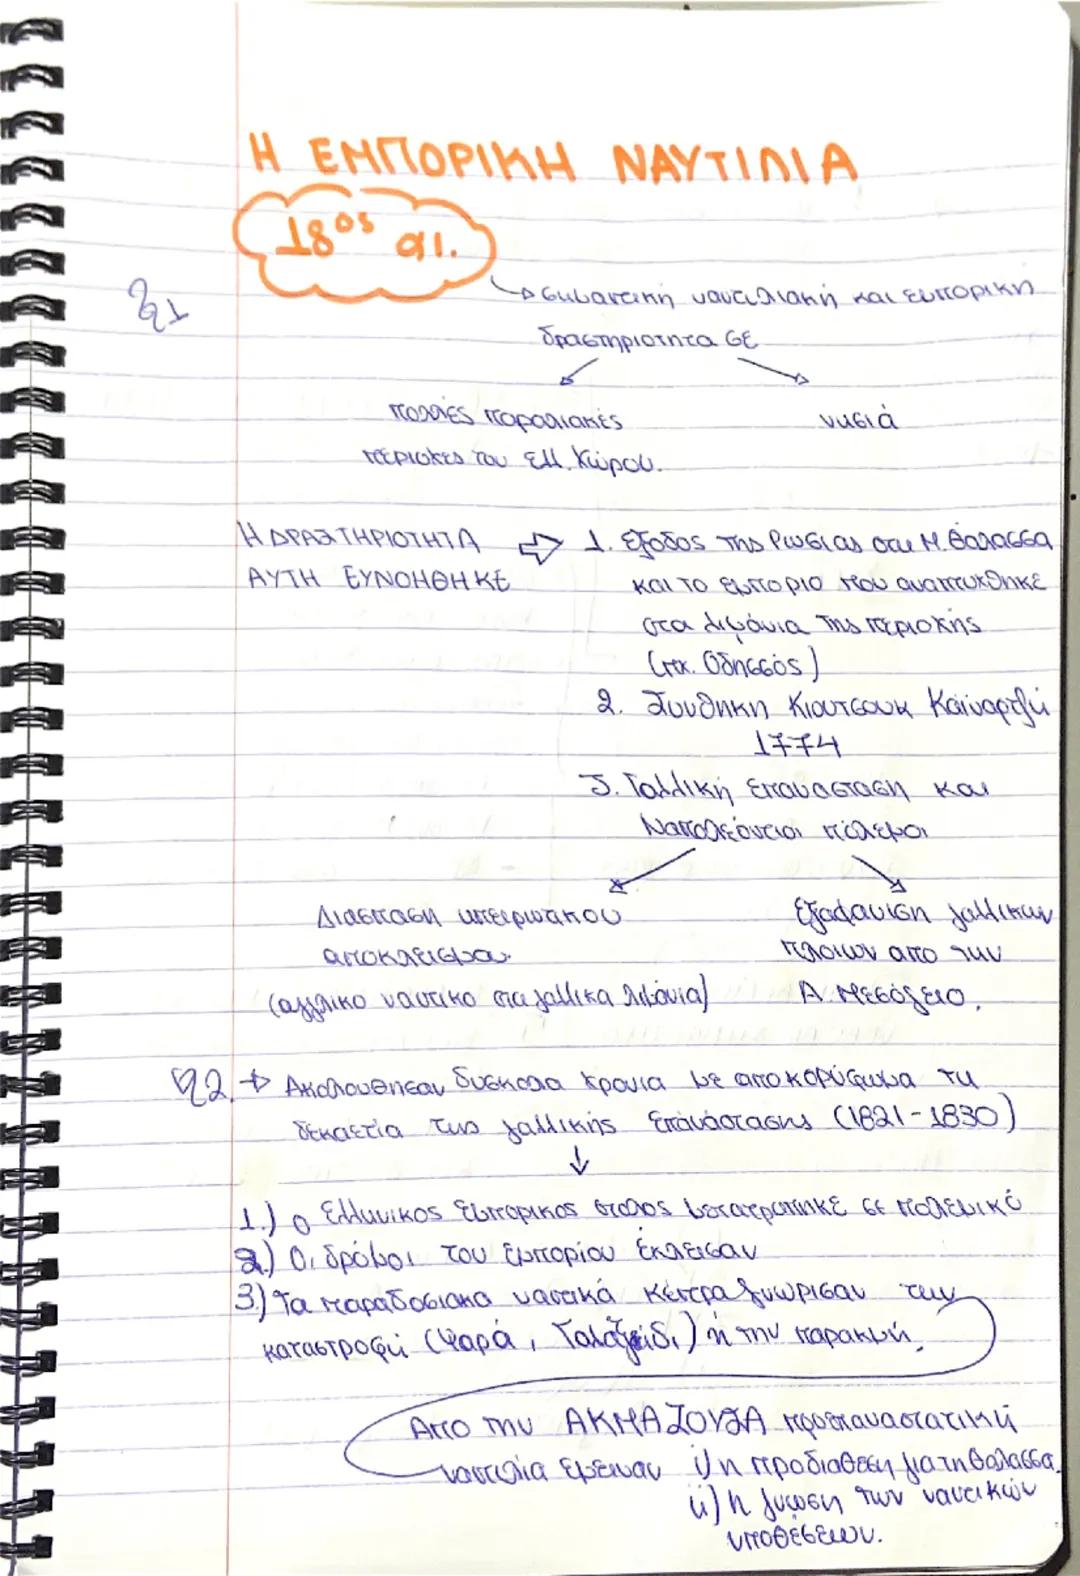 Η ΕΜΠΟΡΙΚΗ ΝΑΥΤΙΛΙΑ
18ος αι.
§1
→ σημαντική ναυτιλιακή και εμπορική
δραστηριότητα σε
πολλές παραλιακές
νησιά
περιοχες του Ελλ. Χώρου.
Η ΔΡΑΣΤΗΡΙΟΤΗΤΑ
ΑΥΤΗ ΕΥΝΟΗΘΗΚΕ
⇒ 1. Έξοδος της Ρωσίας στη Μ. Θάλασσα
και το εμποριο που αναπτυχθηκε
στα λιμάνια της περιοχής
(πχ. Οδησσός)
2. Συνθηκη Κιουτσουκ Καϊναρτζή
1774
3. Γαλλική επανασταση και
Ναπολεόντειοι πόλεμοι
Διασπαση ηπειρωτικου
αποκλεισμου.
(αγγλικο ναυτικο στα γαλλικα λιμάνια)
Εξαφανιση γαλλικων
πλοιων απο την
Α. Μεσόγειο.
§2. → Ακολουθησαν δυσκολα χρονια με αποκορύφωμα τη
δεκαετία της γαλλικής Επανάστασης (1821-1830)
↓
1.) ο Ελληνικος εμπορικος στολος μετατραπηκε σε πολεμικό
2.) Οι δρόμοι του εμποριου έκλεισαν
3.) Τα παραδοσιακα ναυτικά κέντρα γνώρισαν την
καταστροφή (Ψαρά, Γαλαξείδι) ή την παρακμή.
Απο την ΑΚΜΑΖΟΥΣΑ προεπαναστατική
ναυτιλια εμειναν i) η προδιαθεση για τη θαλασσα
ii) η γνώση των ναυτικών
υποθέσεων.